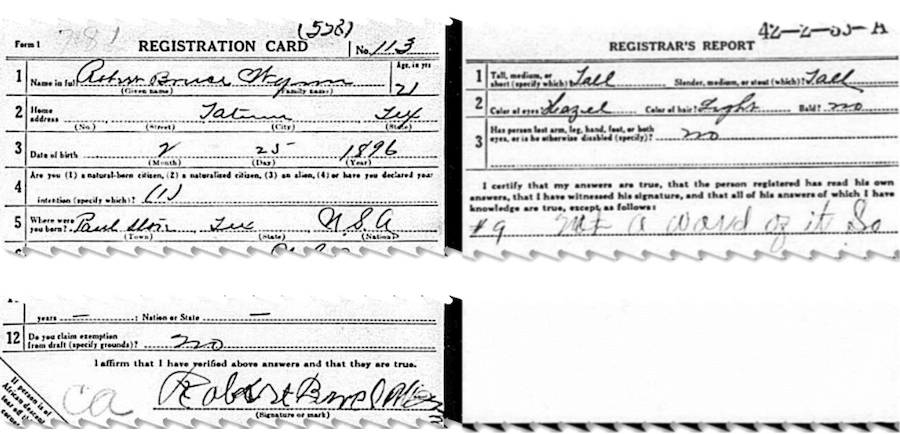 (538)
Form 1 781 REGISTRATION CARD No. 113
1 Name in full Robert Bruce Wynn Age, in yrs 21
(Given name) (Family name)
2 Home address Tatum Tex
(No.) (Street) (City) (State)
3 Date of birth 2 25 1896
(Month) (Day) (Year)
4 Are you (1) a natural-born citizen, (2) a naturalized citizen, (3) an alien, (4) or have you declared your
intention (specify which)? (1)
5 Where were you born? Paul Tex U.S.A
(Town) (State) (Nation)
42-2-55-A
REGISTRAR'S REPORT
1 Tall, medium, or short (specify which)? Tall Slender, medium, or stout (which)? Tall
2 Color of eyes? Hazel Color of hair? Light Bald? no
3 Has person lost arm, leg, hand, foot, or both
eyes, or is he otherwise disabled (specify)? no
I certify that my answers are true, that the person registered has read his own
answers, that I have witnessed his signature, and that all of his answers of which I have
knowledge are true, except as follows:
#9 Not a word of it So
years — ; Nation or State —
12 Do you claim exemption
from draft (specify grounds)? no
I affirm that I have verified above answers and that they are true.
If person is of
African descent
tear off this
corner
ca Robert Bruce
(Signature or mark)